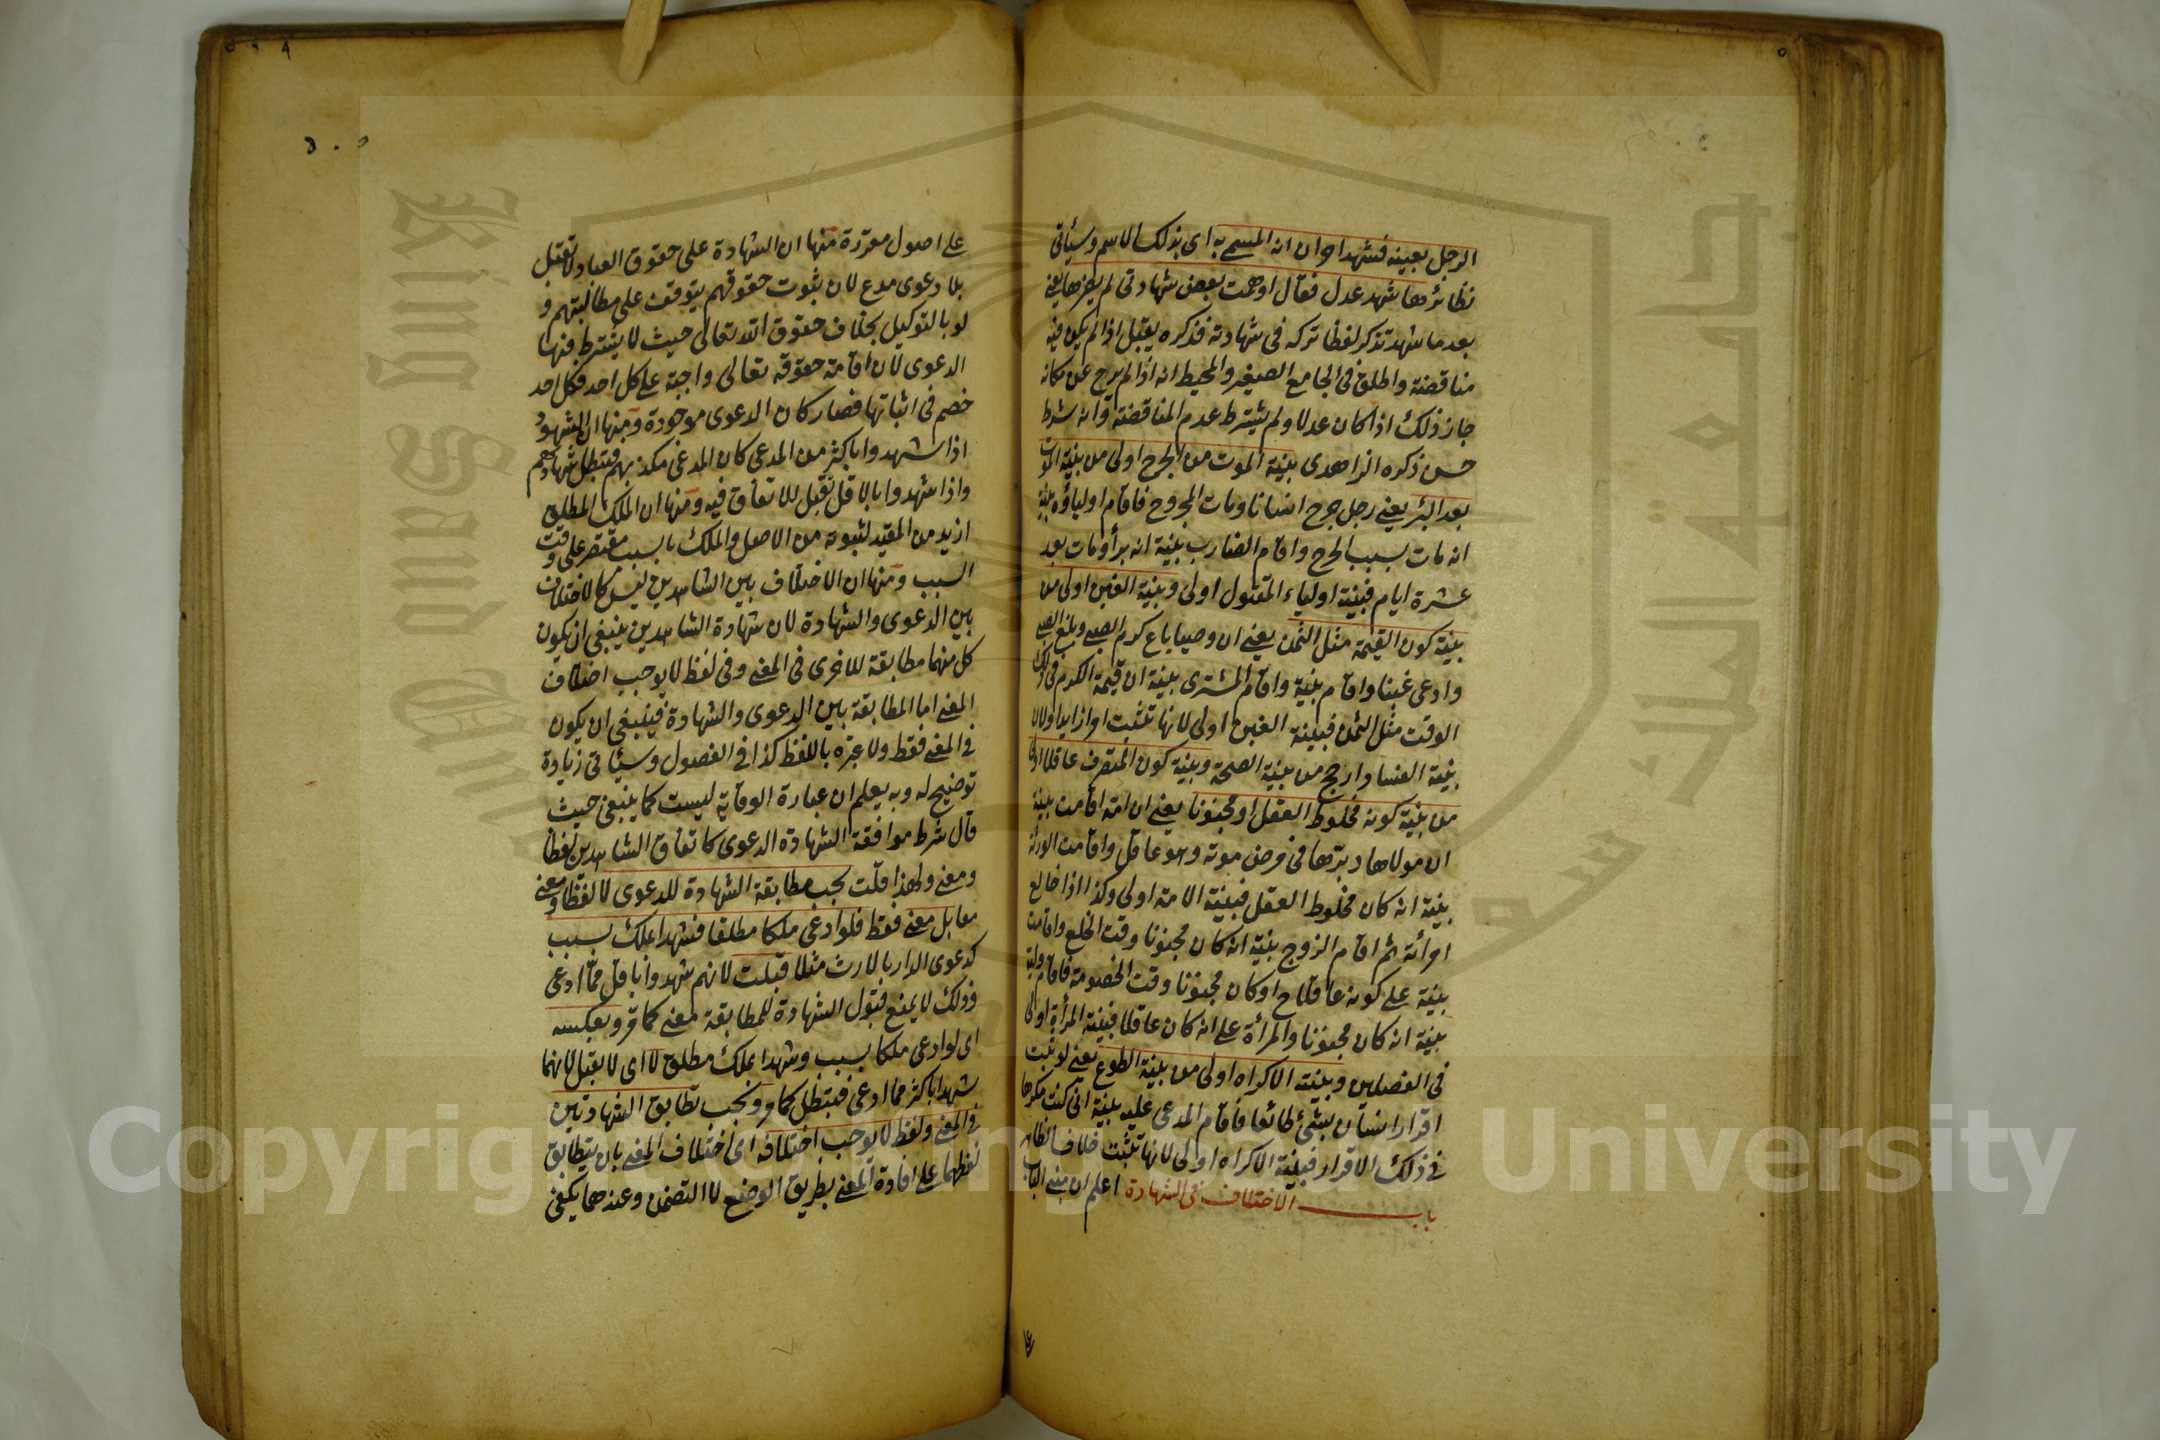 الرجل بعينه فشهد اخران انه المسمى به اى بذلك الاسم وسيأتى
نظائرها شهد عدل فقال اوهمت بعض شهادتى لم يضرها يعنى
بعد ما شهد تذكر لفظا تركه فى شهادته فذكره يقبل اذا لم يكن فيه
مناقضة واطلق فى الجامع الصغير والمحيط انه اذا لم يبرح عن مكانه
جاز ذلك اذا كان عدلا ولم يشترط عدم المناقضة وانه شرط
حسن ذكره الزاهدى بينة الموت من الجرح اولى من بينة الموت
بعد البرء يعنى رجل جرح انسانا ومات المجروح فاقام اولياؤه بينة
انه مات بسبب الجرح واقام الضارب بينة انه برأ ومات بعد
عشرة ايام فبينة اولياء المقتول اولى وبينة الغبن اولى من
بينة كون القيمة مثل الثمن يعنى ان وصيا باع كرم الصبى وبلغ الصبى
وادعى غبنا واقام بينة واقام المشترى بينة ان قيمة الكرم فى ذلك
الوقت مثل الثمن فبينة الغبن اولى لانها تثبت امرا زايدا ولان
بينة الفساد ارجح من بينة الصحة وبينة كون المتصرف عاقلا اولى
من بينة كونه مخلوط العقل او مجنونا يعنى ان امة اقامت بينة
ان مولاها دبرها فى مرض موته وهو عاقل واقامت الورثة
بينة انه كان مخلوط العقل فبينة الامة اولى وكذا اذا خالع
امرأته ثم اقام الزوج بينة انه كان مجنونا وقت الخلع واقامت
بينة على كونه عاقلا ح او كان مجنونا وقت الخصومة فاقام وليه
بينة انه كان مجنونا والمرأة على انه كان عاقلا فبينة المرأة اولى
فى الفصلين وبينة الاكراه اولى من بينة الطوع يعنى لو ثبت
اقرار انسان بشئ طائعا فاقام المدعى عليه بينة انى كنت مكرها
فى ذلك الاقرار فبينة الاكراه اولى لانها تثبت خلاف الظاهر
باب الاختلاف فى الشهادة اعلم ان مبنى الباب
على اصول مقررة منها ان الشهادة على حقوق العباد لا تقبل
بلا دعوى مدع لان ثبوت حقوقهم يتوقف على مطالبتهم و
لو بالتوكيل بخلاف حقوق الله تعالى حيث لا يشترط فيها
الدعوى لان اقامة حقوقه تعالى واجبة على كل احد فكل احد
خصم فى اثباتها فصار كان الدعوى موجودة ومنها ان الشهود
اذا شهدوا باكثر من المدعى كان المدعى مكذبهم فتبطل شهادتهم
واذا شهدوا بالاقل تقبل للاتفاق فيه ومنها ان الملك المطلق
ازيد من المقيد لثبوته من الاصل والملك بالسبب مقتصر على وقت
السبب ومنها ان الاختلاف بين الشاهدين ليس كالاختلاف
بين الدعوى والشهادة لان شهادة الشاهدين ينبغى ان يكون
كل منهما مطابقة للاخرى فى المعنى وفى لفظ لا يوجب اختلاف
المعنى اما المطابقة بين الدعوى والشهادة فينبغى ان يكون
فى المعنى فقط ولا عبرة باللفظ كذا فى الفصول وسيأتى زيادة
توضيح له وبه يعلم ان عبارة الوقاية ليست كما ينبغى حيث
قال شرط موافقة الشهادة الدعوى كاتفاق الشاهدين لفظا
ومعنى ولهذا قلت يجب مطابقة الشهادة للدعوى لا لفظا ومعنى
معا بل معنى فقط فلو ادعى ملكا مطلقا فشهدا بملك بسبب
كدعوى الدار بالارث مثلا قبلت لانهم شهدوا باقل مما ادعى
وذلك لا يمنع قبول الشهادة للمطابقة معنى كما مر وبعكسه
اى لو ادعى ملكا بسبب وشهدا بملك مطلق لا اى لا يقبل لانهما
شهدا باكثر مما ادعى فيبطل كما مر ويجب تطابق الشهادتين
فى المعنى ولفظ لا يوجب اختلافه اى اختلاف المعنى بان يتطابق
لفظهما على افادة المعنى بطريق الوضع لا التضمن وعندهما يكفى
Copyright © King Saud University